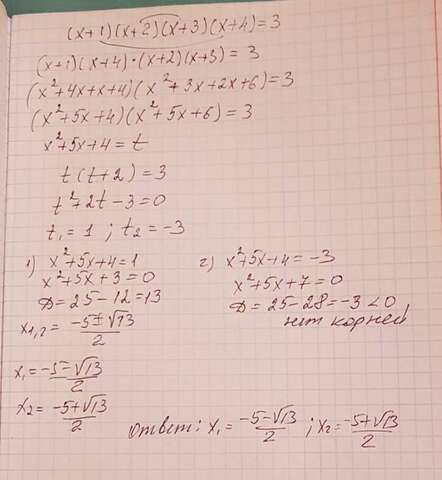 (x+1)(x+2)(x+3)(x+4)=3
(x+1)(x+4)·(x+2)(x+3) = 3
(x²+4x+x+4)(x²+3x+2x+6)=3
(x²+5x+4)(x²+5x+6)=3
x²+5x+4=t
t(t+2)=3
t²+2t-3=0
t₁=1 ; t₂=-3
1) x²+5x+4=1
x²+5x+3=0
D=25-12=13
x₁,₂= (-5±√13)/2
x₁= (-5-√13)/2
x₂= (-5+√13)/2
2) x²+5x+4=-3
x²+5x+7=0
D=25-28=-3<0
нет корней
Ответ: x₁= (-5-√13)/2 ; x₂= (-5+√13)/2